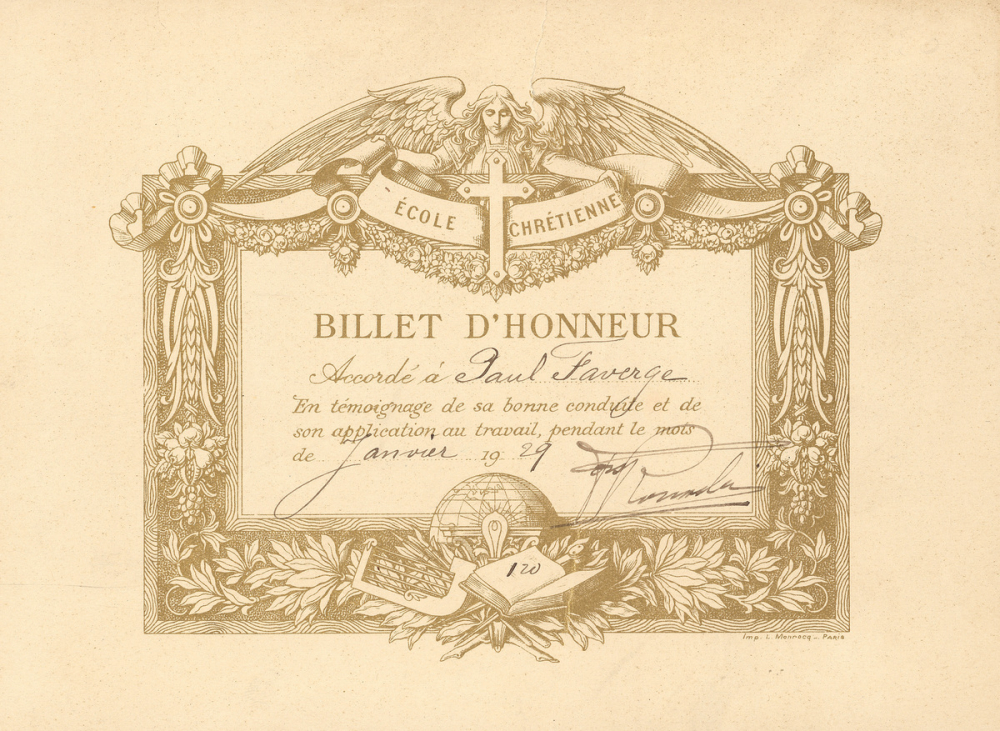 ÉCOLE CHRÉTIENNE
BILLET D'HONNEUR
Accordé à Paul Faverge
En témoignage de sa bonne conduite et de
son application au travail, pendant le mois
de Janvier 1929
120
Imp. L. Monrocq - Paris